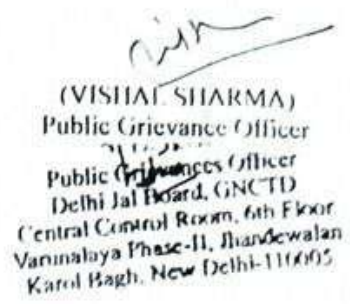 (VISHAL SHARMA)
Public Grievance Officer
Public Grievances Officer
Delhi Jal Board, GNCTD
Central Control Room, 6th Floor
Varunalaya Phase-II, Jhandewalan
Karol Bagh, New Delhi-110005